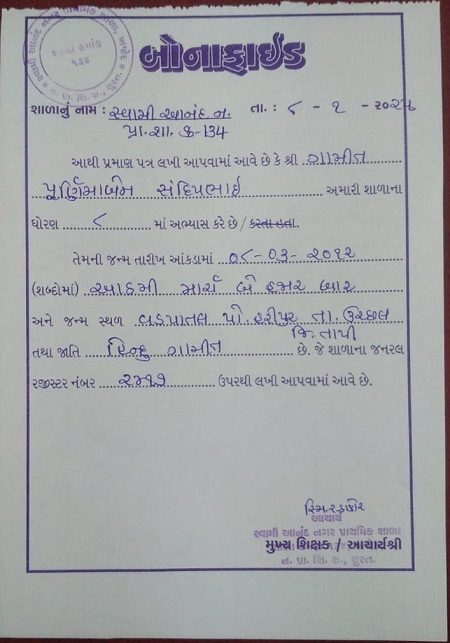 શાળા ક્રમાંક
૧૩૪
બોનાફાઇડ
શાળાનું નામ : સ્વામી આનંદ ન. તા. : ૮ - ૧ - ૨૦૨૫
પ્રા. શા. ક્ર-134
આથી પ્રમાણ પત્ર લખી આપવામાં આવે છે કે શ્રી ગામીત
પૂર્ણિમાબેન સંદિપભાઇ અમારી શાળાના
ધોરણ ૮ માં અભ્યાસ કરે છે / કરતા હતા.
તેમની જન્મ તારીખ આંકડામાં ૦૮-૦૩-૨૦૧૨
(શબ્દોમાં) આઠમી માર્ચ બે હજાર બાર
અને જન્મ સ્થળ વડપાતલ પો. હરીપુર તા. ઉચ્છલ
જિ. તાપી
તથા જાતિ હિન્દુ ગામીત છે. જે શાળાના જનરલ
રજીસ્ટર નંબર ઉપરથી લખી આપવામાં આવે છે.
આચાર્ય
સ્વામી આનંદ નગર પ્રાથમિક શાળા
મુખ્ય શિક્ષક / આચાર્યશ્રી
ન. પ્રા. શિ. સ., સુરત.